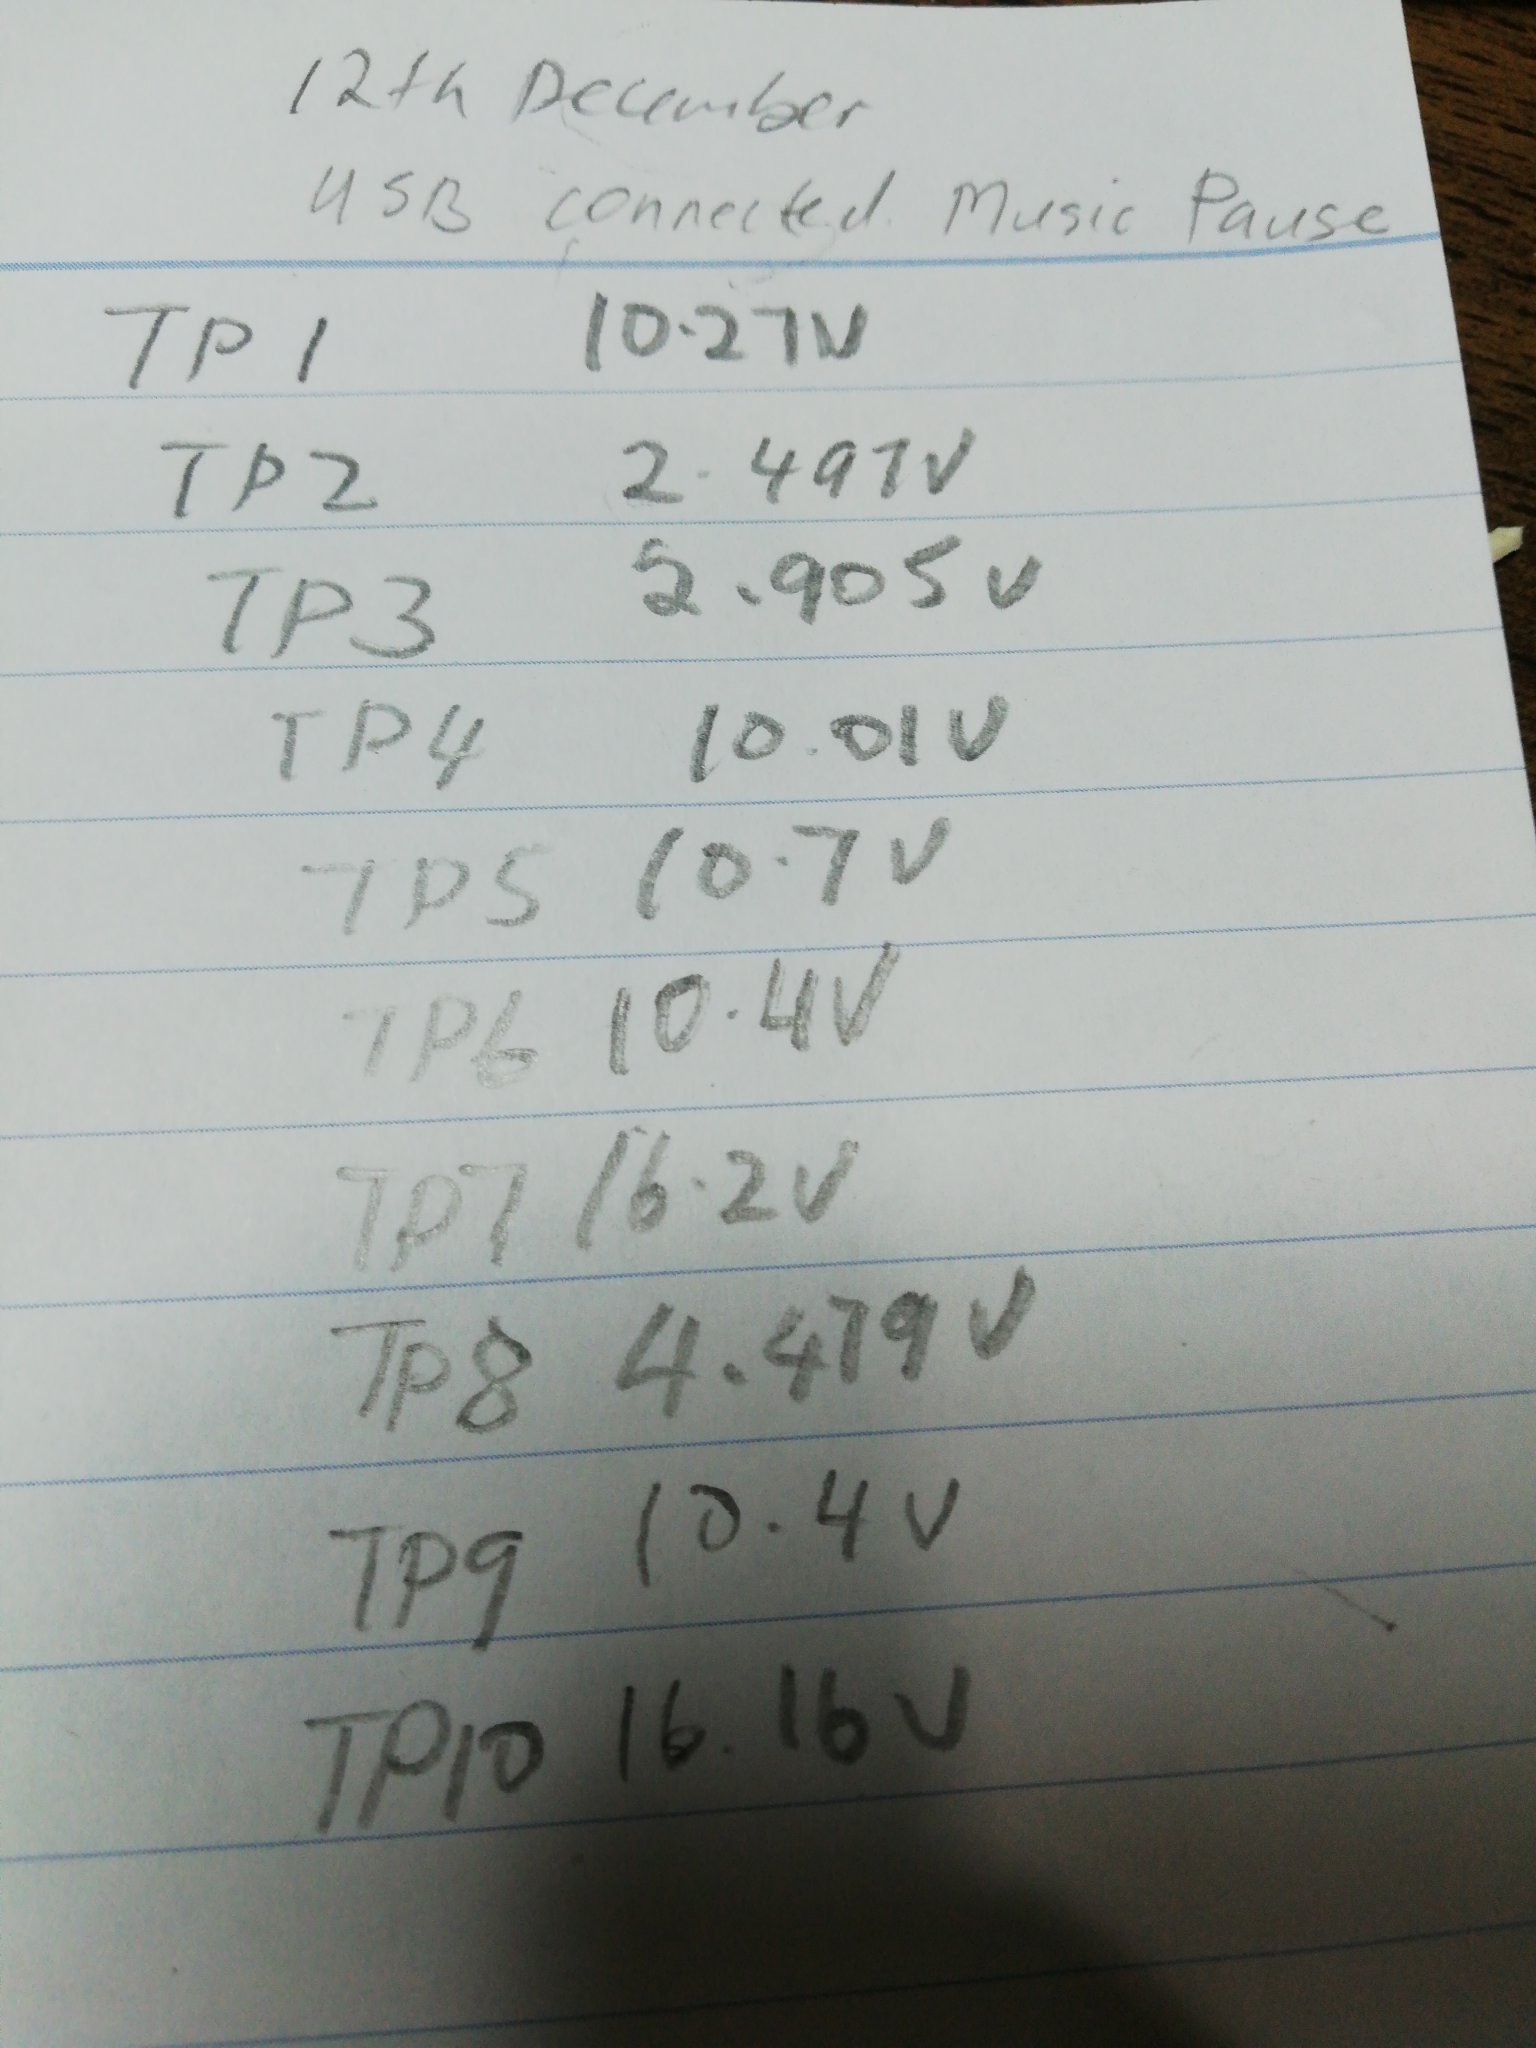 12th December
USB connected. Music Pause
TP1 10.27V
TP2 2.497V
TP3 2.905V
TP4 10.01V
TP5 10.7V
TP6 10.4V
TP7 16.2V
TP8 4.479V
TP9 10.4V
TP10 16.16V